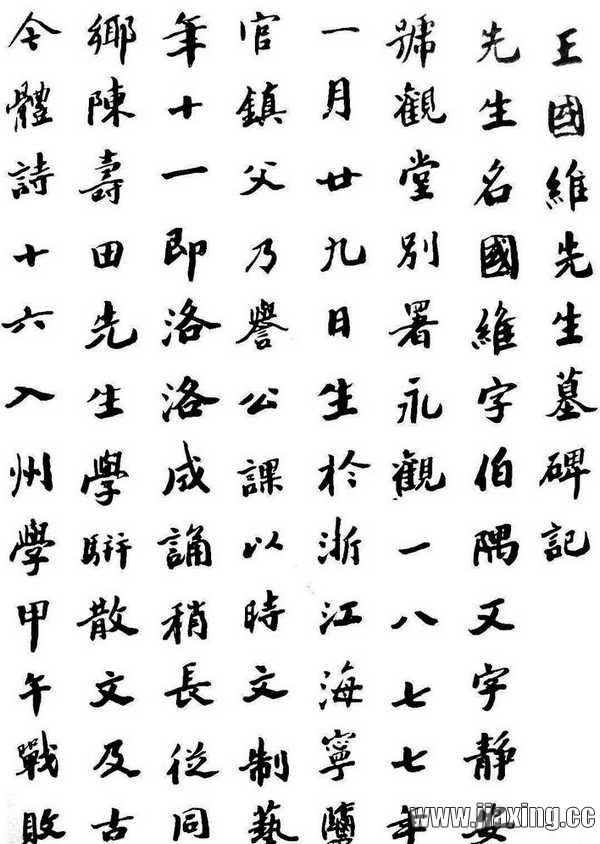 王國維先生墓碑記
先生名國維字伯隅又字靜安
號觀堂別署永觀一八七七年
一月廿九日生於浙江海寧鹽
官鎮父乃譽公課以時文制藝
年十一即洛洛成誦稍長從同
鄉陳壽田先生學駢散文及古
今體詩十六入州學甲午戰敗
www.jiaxing.cc